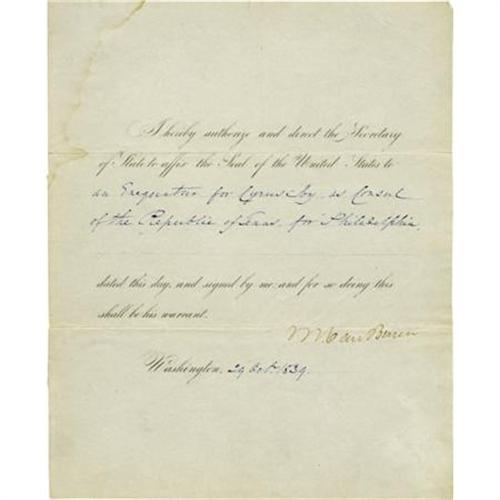 I hereby authorize and direct the Secretary
of State to affix the Seal of the United States to
an Exequatur for Cyrus Joy, as Consul
of the Republic of Texas, for Philadelphia
dated this day, and signed by me: and for so doing this
shall be his warrant.
M. Van Buren
Washington, 29 Oct. 1839.